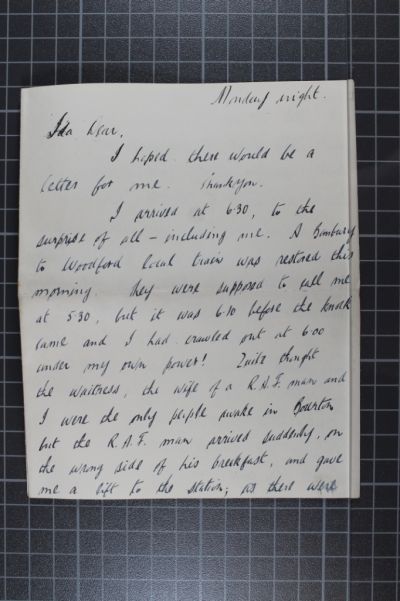 Monday night.
Ida Dear,
I hoped there would be a
letter for me. Thankyou.
I arrived at 6.30, to the
surprise of all - including me. A Banbury
to Woodford local train was restored this
morning. They were supposed to call me
at 5.30, but it was 6.10 before the knock
came and I had crawled out at 6.00
under my own power! Quite thought
the waitress, the wife of a R.A.F. man and
I were the only people awake in Bourton
but the R.A.F. man arrived suddenly, on
the wrong side of his breakfast, and gave
me a lift to the station; as there were